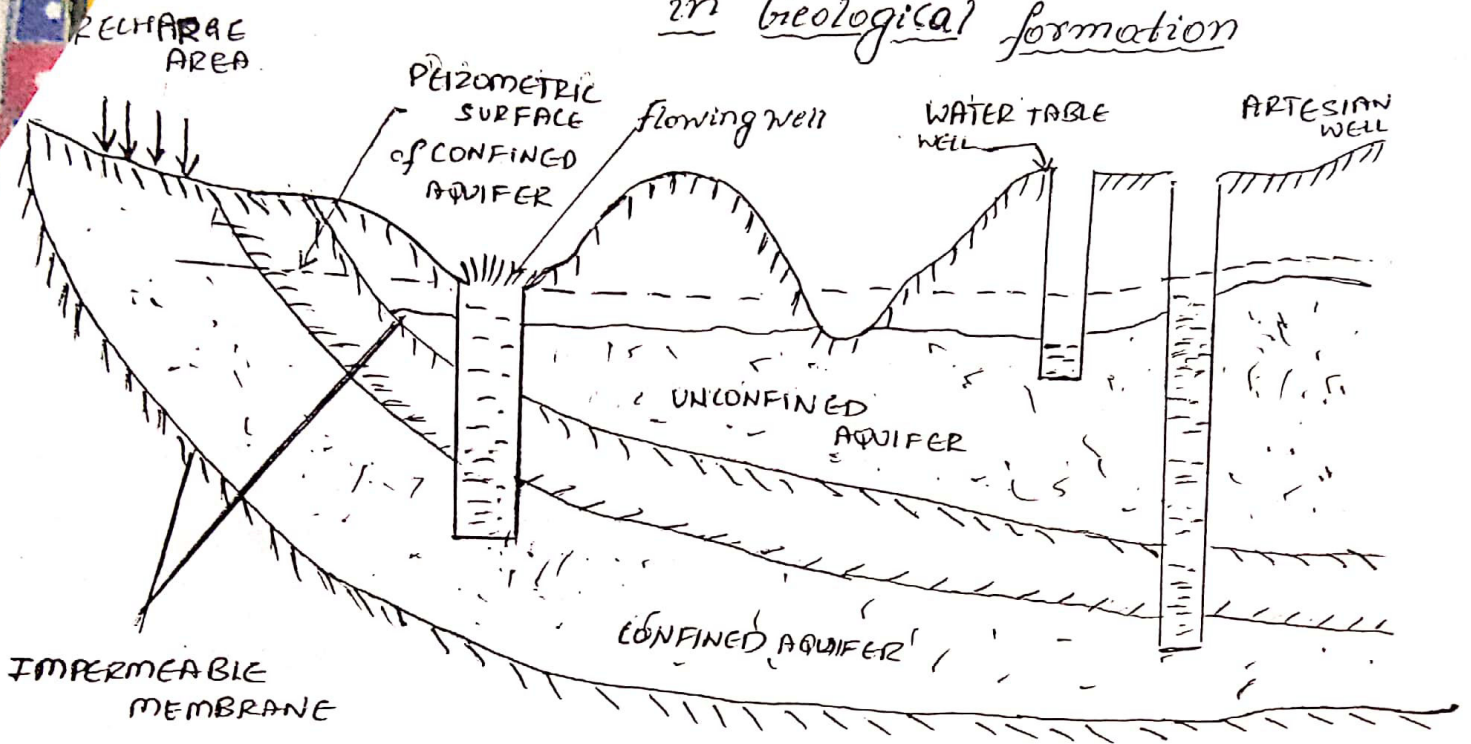 in Geological formation
RECHARGE
AREA
PEIZOMETRIC
SURFACE
of CONFINED
AQUIFER
flowing well
WATER TABLE
WELL
ARTESIAN
WELL
UNCONFINED
AQUIFER
CONFINED AQUIFER
IMPERMEABLE
MEMBRANE